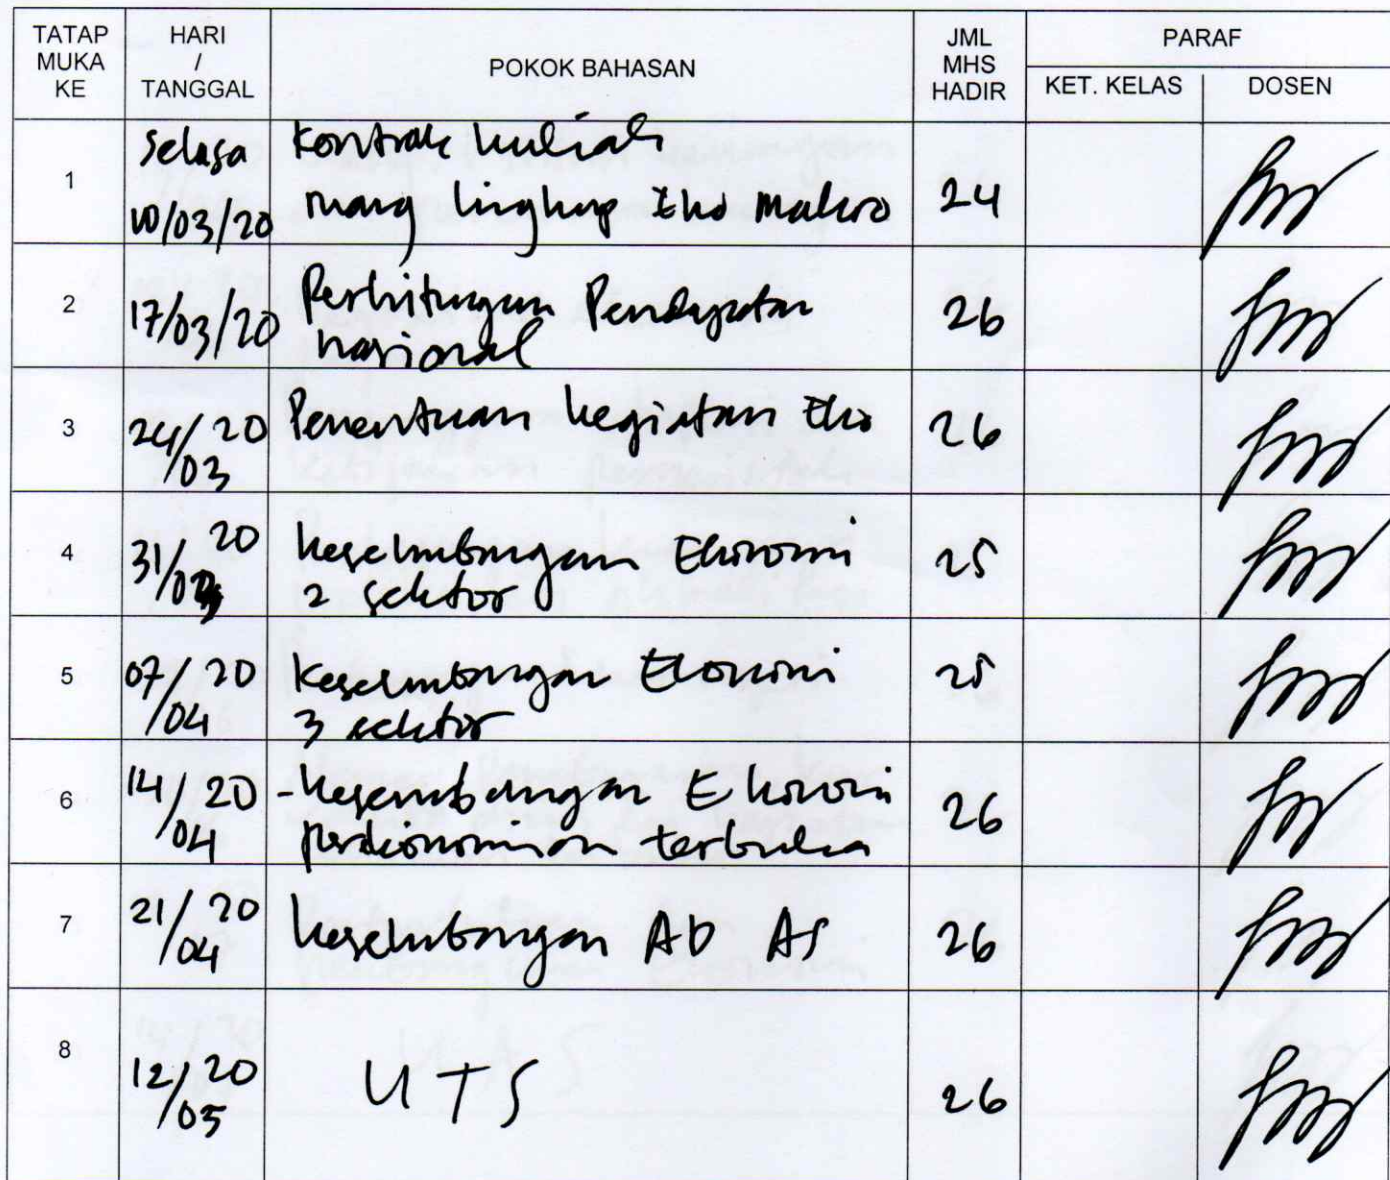 TATAP MUKA KE HARI / TANGGAL POKOK BAHASAN JML MHS HADIR PARAF
KET. KELAS DOSEN
1 Selasa 10/03/20 Kontrak kuliah
ruang lingkup Eko Makro 24
2 17/03/20 Perhitungan Pendapatan
nasional 26
3 24/03/20 Penentuan kegiatan Eko 26
4 31/03/20 keseimbangan Ekonomi
2 sektor 25
5 07/04/20 Keseimbangan Ekonomi
3 sektor 25
6 14/04/20 - keseimbangan Ekonomi
perekonomian terbuka 26
7 21/04/20 keseimbangan AD AS 26
8 12/05/20 UTS 26